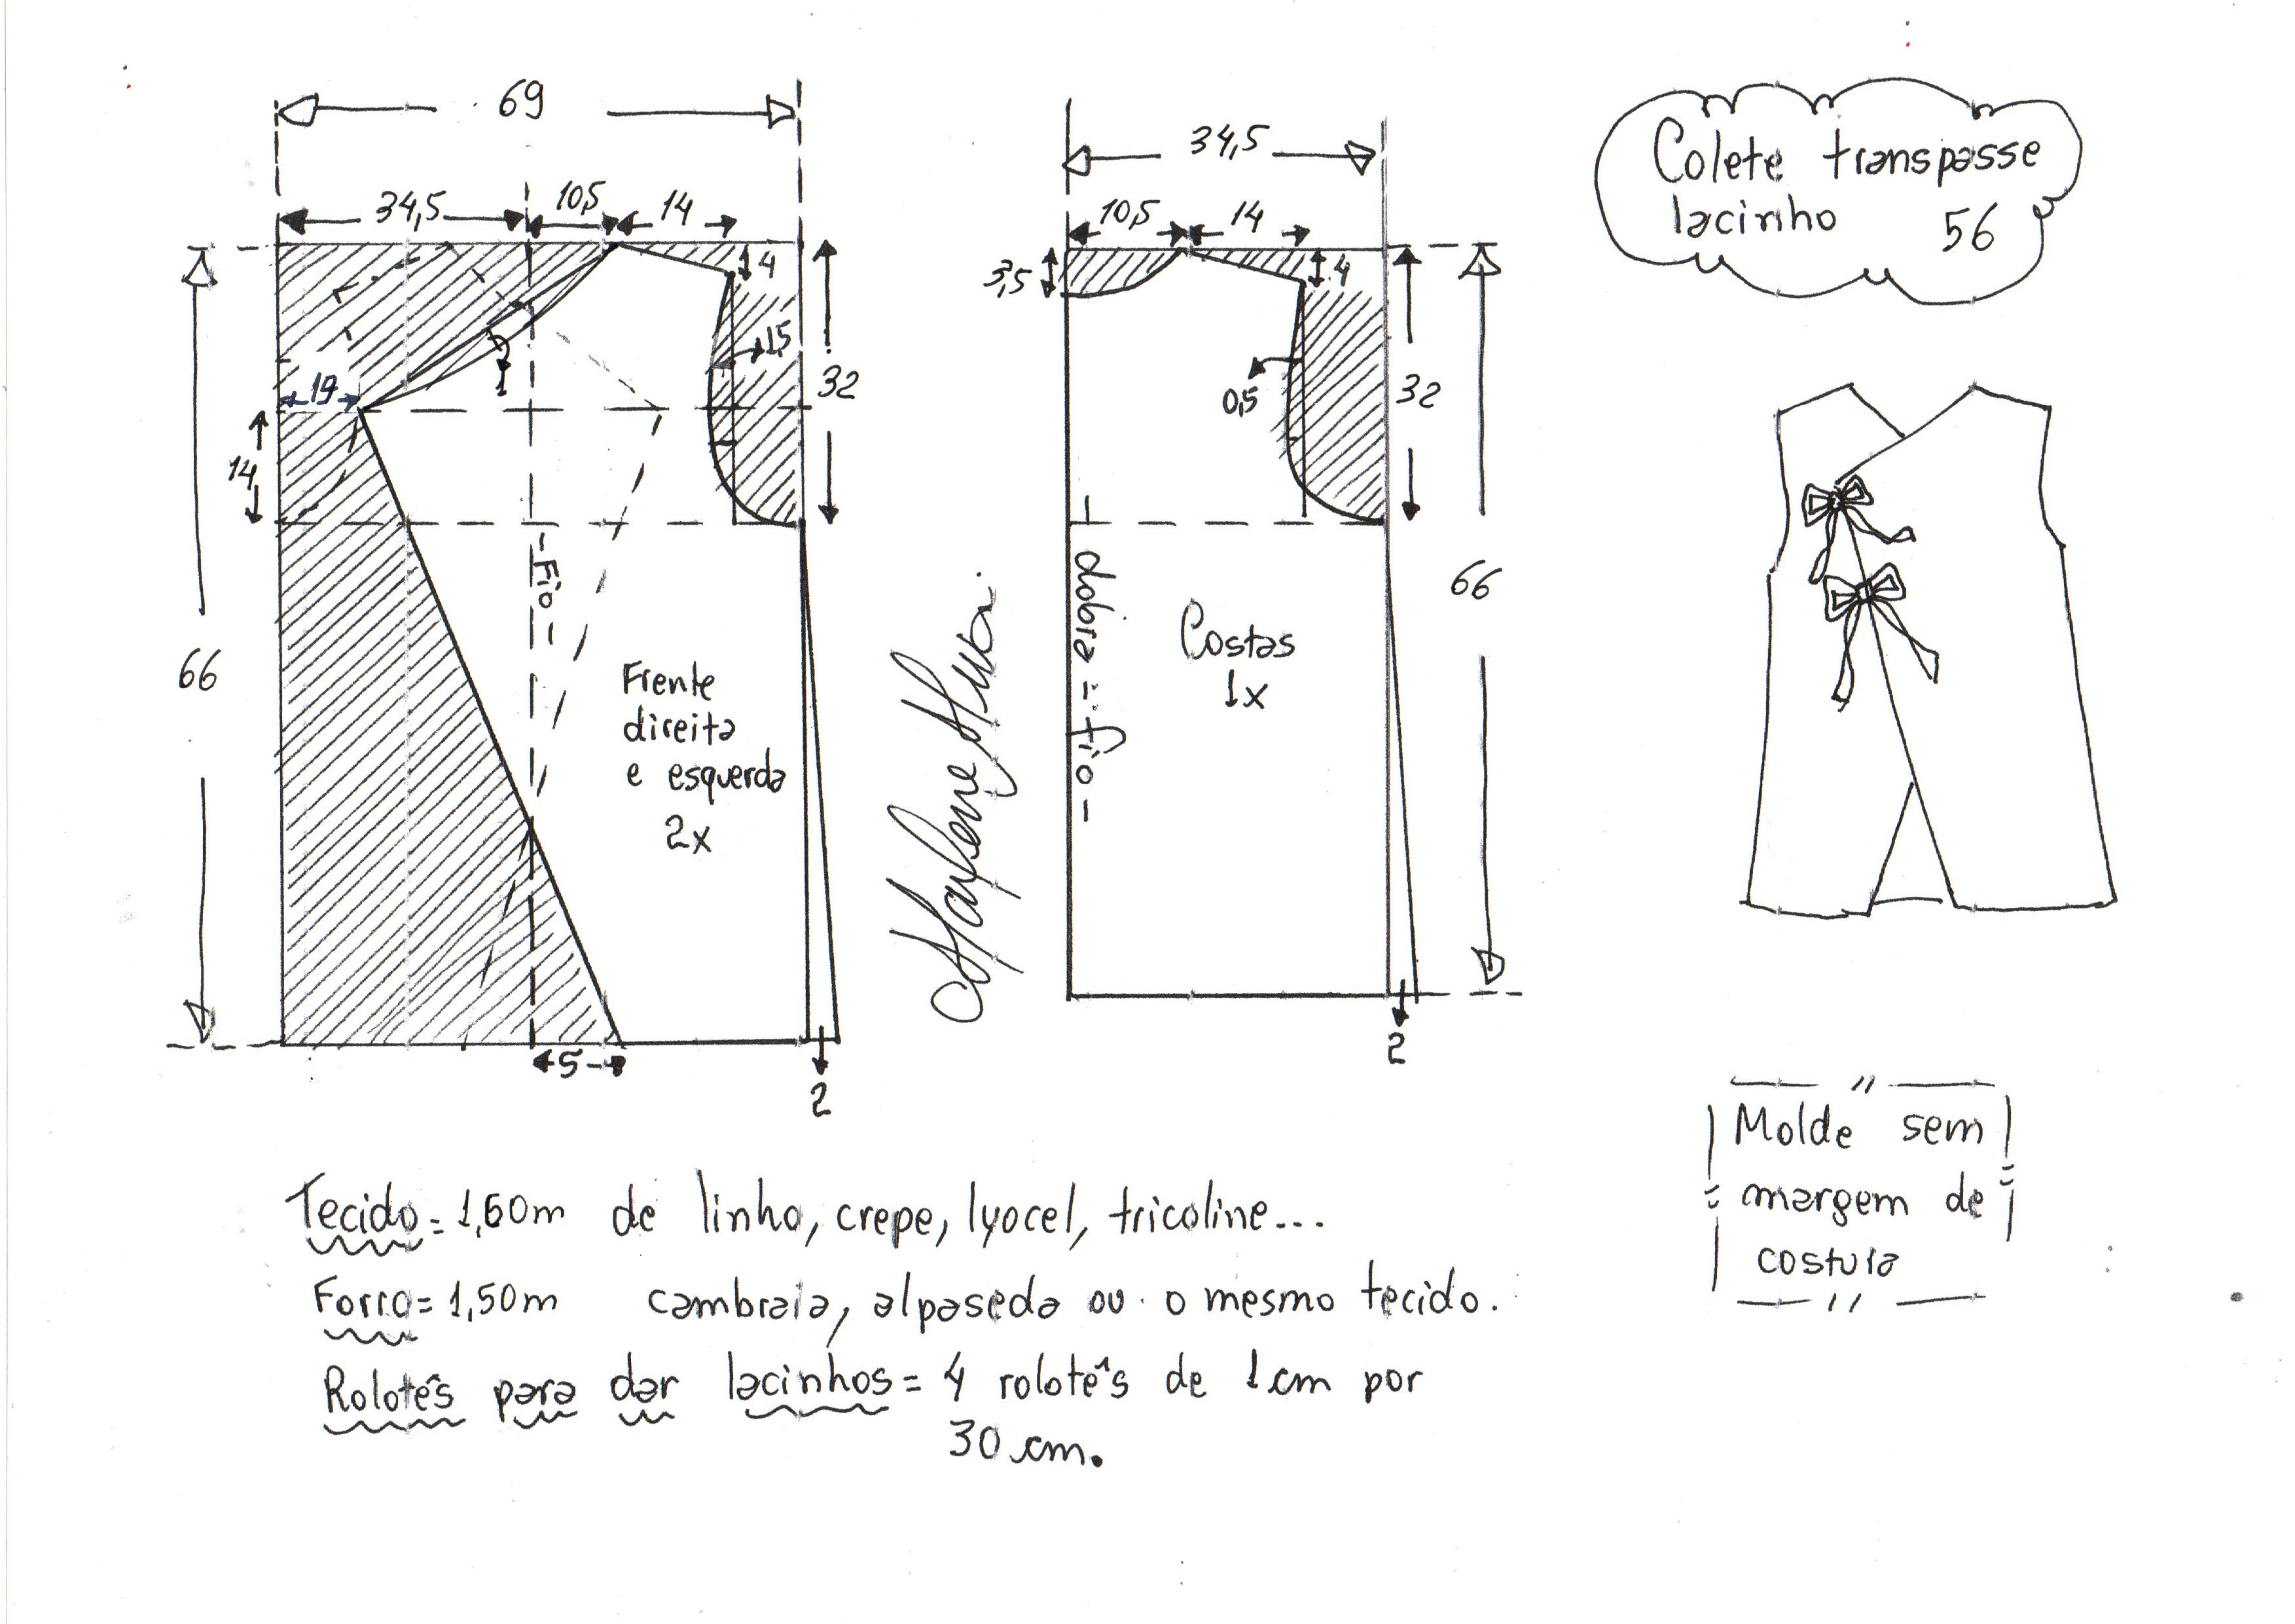 69
34,5
10,5
14
4
1,5
32
19
14
1
66
-Fio-
Frente
direita
e esquerda
2x
5
2
34,5
10,5
14
3,5
4
0,5
32
66
dobra = fio -
Costas
1x
2
Colete transpasse
lacinho 56
Molde sem
margem de
costura
Tecido = 1,60m de linho, crepe, lyocel, tricoline...
Forro = 1,50m cambraia, alpaseda ou o mesmo tecido.
Rolotês para dar lacinhos = 4 rolotês de 1 cm por
30 cm.